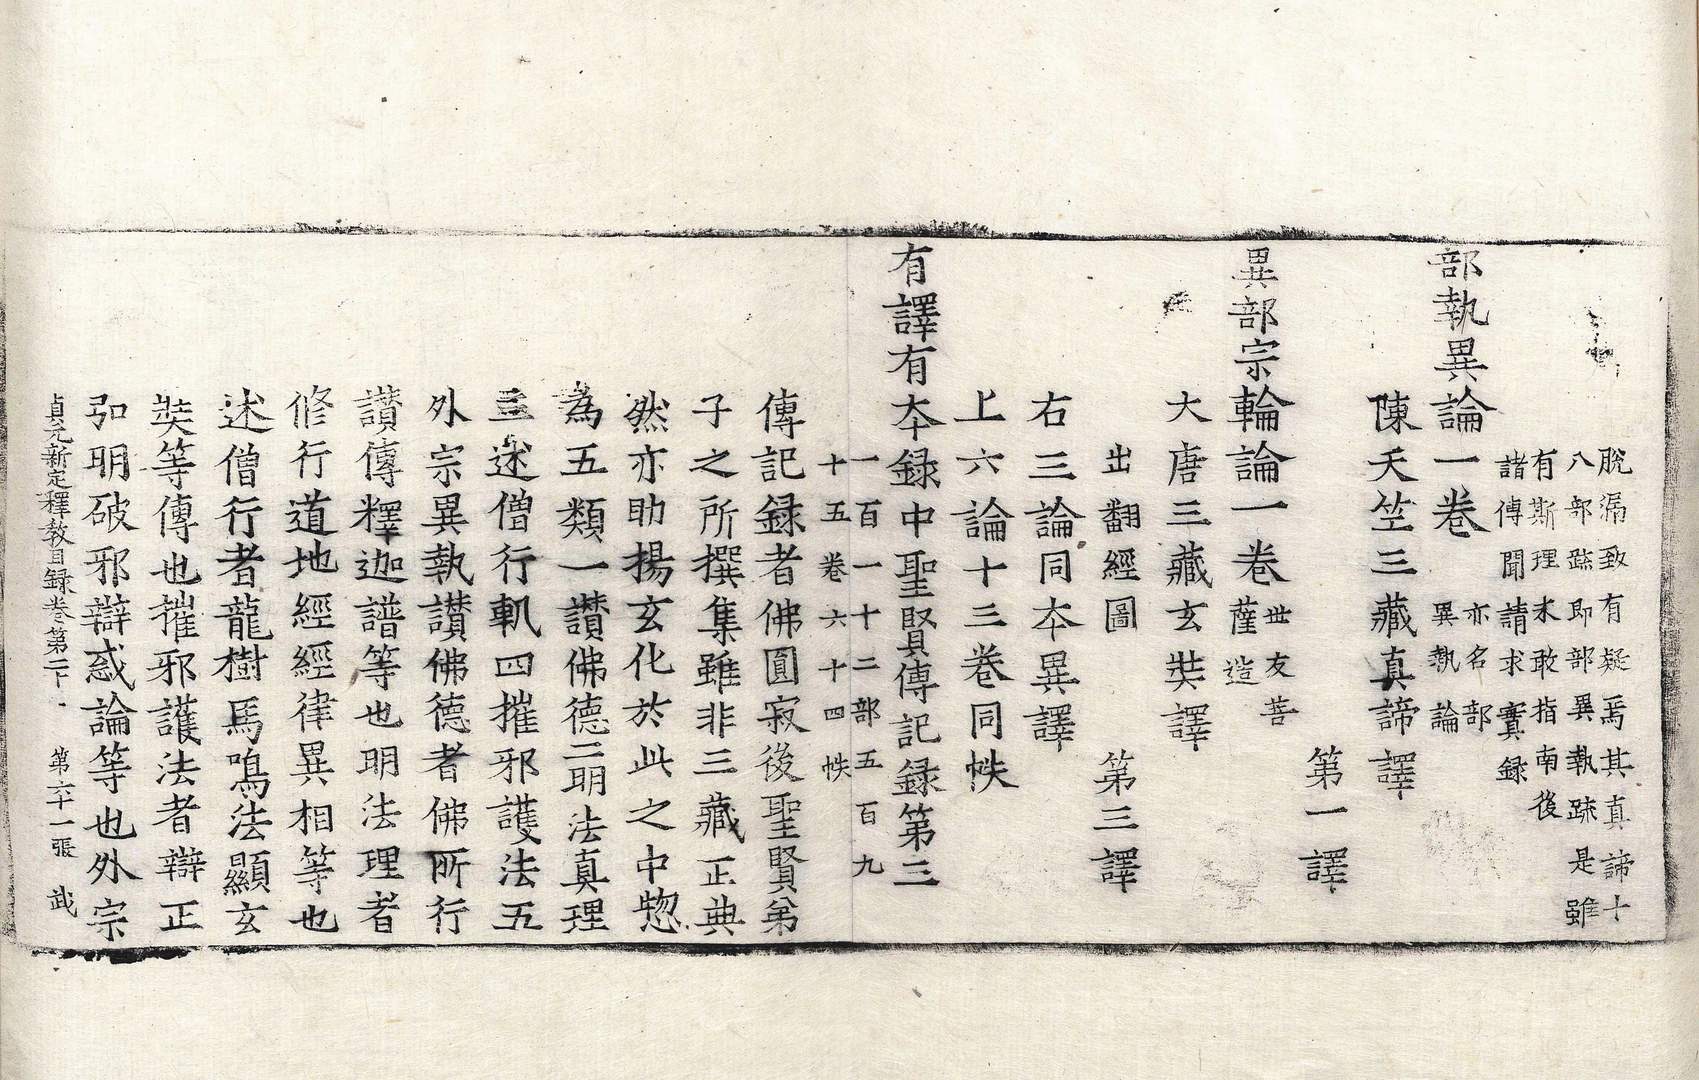 脫漏致有疑焉其真諦十
八部䟽即部異執䟽是雖
有斯理未敢指南後
諸傅聞請求實録
部執異論一卷亦名部
異執論
陳天竺三藏真諦譯
第一譯
異部宗輪論一卷世友菩
薩造
大唐三藏玄奘譯
出翻經圖
第三譯
右三論同夲異譯
上六論十三卷同帙
有譯有夲録中聖賢傳記録第三
一百一十二部五百九
十五卷六十四帙
傳記録者佛圓寂後聖賢弟
子之所撰集雖非三藏正典
然亦助揚玄化於此之中惣
為五類一讃佛德二明法真理
三述僧行軌四摧邪護法五
外宗異執讃佛德者佛所行
讃傳釋迦譜等也明法理者
修行道地經經律異相等也
述僧行者龍樹馬鳴法顯玄
奘等傳也摧邪護法者辯正
弘明破邪辯惑論等也外宗
貞元新定釋教目録卷第二下 第六十一張 武